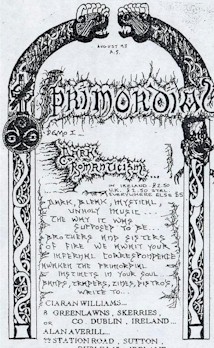 AUGUST 93
A.S.
PRIMORDIAL
DEMO I...
DARK
ROMANTICISM...
IN IRELAND £2.50
U.K. £2.50 STRL
EVERYWHERE ELSE $5
DARK, BLEAK, MYSTICAL,
UNHOLY MUSIC...
THE WAY IT WAS
SUPPOSED TO BE...
BROTHERS AND SISTERS
OF FIRE WE AWAIT YOUR
INFERNAL CORRESPONDENCE
AWAKEN THE PRIMORDIAL
INSTINCTS IN YOUR SOUL...
BANDS, TRADERS, ZINES, DISTRO'S,
WRITE TO...
CIARAN WILLIAMS...
8 GREENLAWNS, SKERRIES,
CO DUBLIN, IRELAND...
OR
ALAN AVERILL...
STATION ROAD, SUTTON,